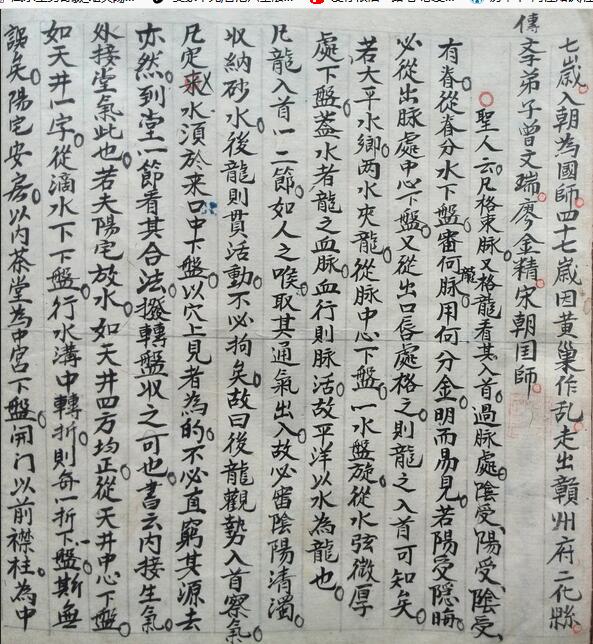 七歲入朝為國師四十七歲因黃巢作乱走出贛州府二化縣
傳文李弟子曾文瑞廖金精宋朝国師
聖人云凡格東脉又格龍看其入首過脉處陰受陽受陰亮
有脊從脊分水下盤審何脉用何分金明而易見若陽受隱晦
必從出脉處中心下盤又從出口唇處格之則龍之入首可知矣
若大平水鄉两水夾龍從脉中心下盤一水盤旋從水弦微厚
處下盤蓋水者龍之血脉血行則脉活故平洋以水為龍也
凡龍入首一二節如人之喉取其通氣出入故必審陰陽清濁
收納砂水後龍則貫活動不必拘矣故曰後龍觀勢入首察氣
凡定来水須於来口中下盤以穴上見者為的不必直窮其源去
亦然到堂一節看其合法撥轉盤収之可也書云内接生氣
外接堂氣此也若夫陽宅放水如天井四方均正從天井中心下盤
如天井一字從滴水下下盤行水溝中轉折則每一折下一盤斯無
誤矣陽宅安房以内茶堂為中宮下盤開门以前襟柱為中